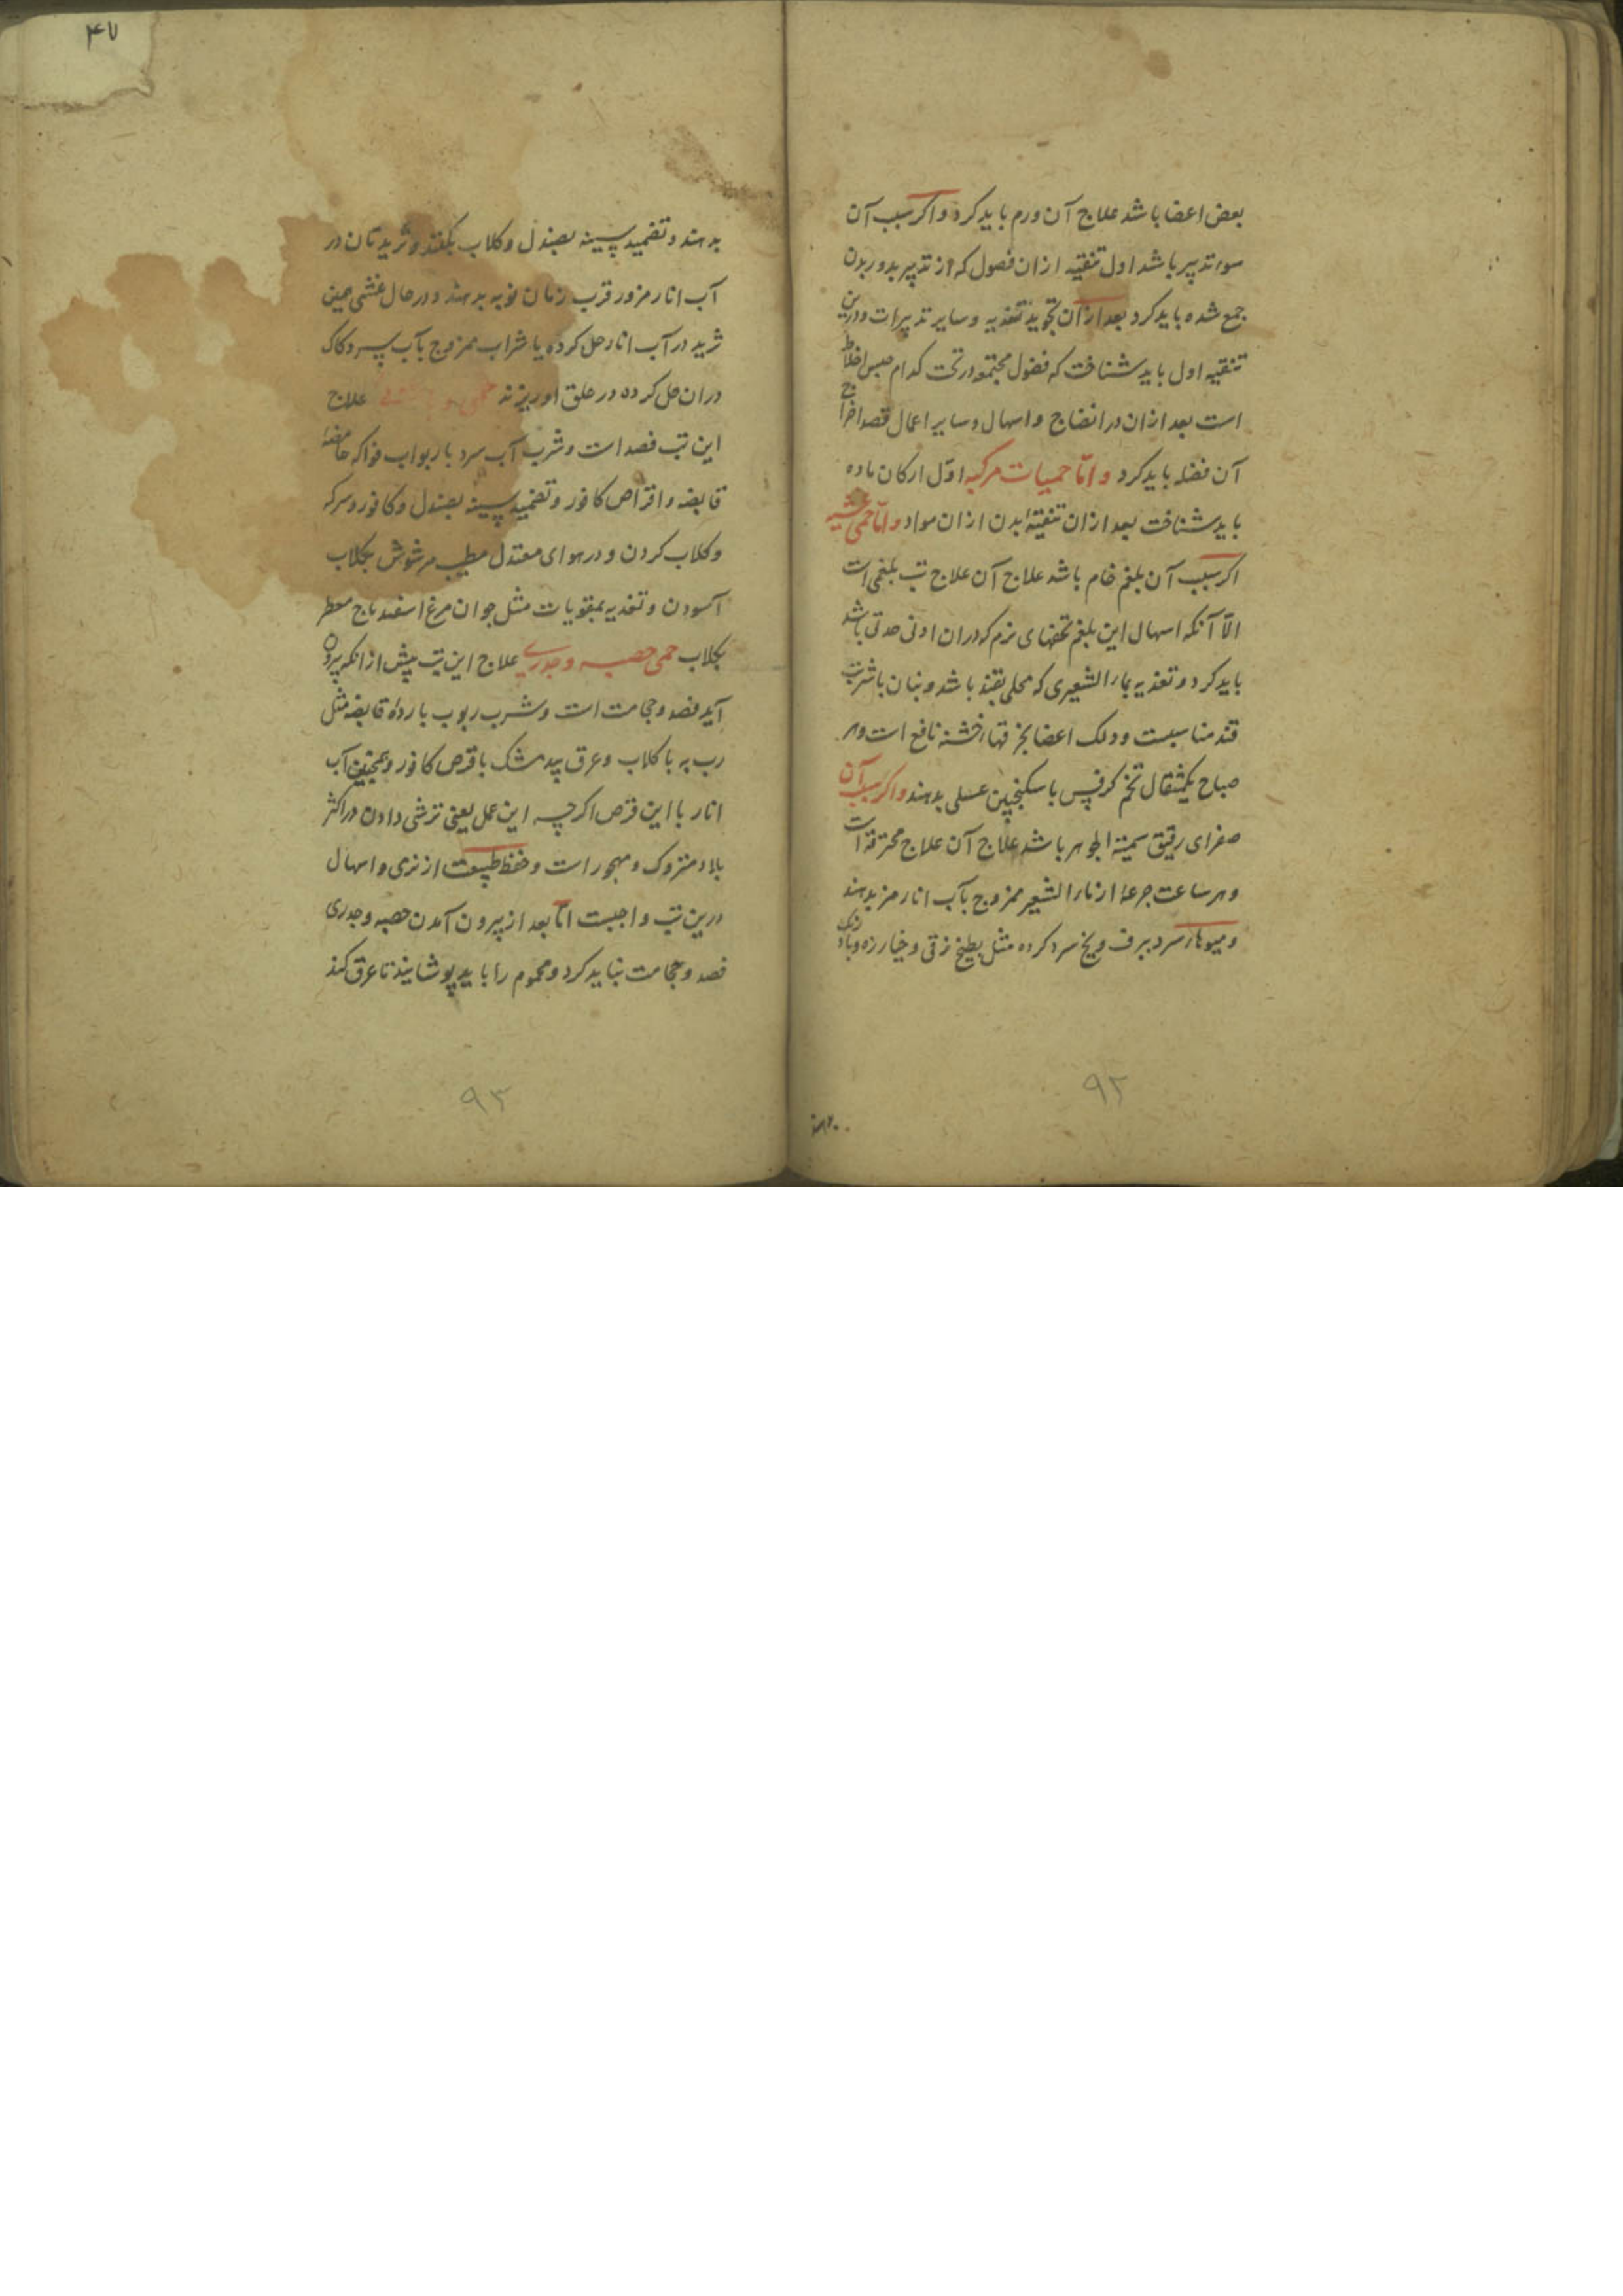 بعض اعضا باشد علاج آن ورم باید کرد و اکر سبب آن
سوء تدبیر باشد اول تنقیه ازان فصول که از تدبیر بد در بدن
جمع شده باید کرد بعد ازان تجوید تغذیه و سایر تدبیرات و درین
تنقیه اول باید شناخت که فضول مجتمعه در تحت کدام جنس اخلاط
است بعد ازان در انضاج و اسهال و سایر اعمال قصد اخراج
آن فضله باید کرد و امّا حمیات مرکبه اوّل ارکان ماده
باید شناخت بعد ازان تنقیۀ بدن ازان مواد و امّا حمی غشیه
اکر سبب آن بلغم خام باشد علاج آن علاج تب بلغمی است
الّا آنکه اسهال این بلغم بحقنهای نرم که دران ادنی حدتی باشد
باید کرد و تغذیه بماء الشعیری که محلی بقند باشد و بنان با شربت
قند مناسبست و دلک اعضا بخرقهاء خشنه نافع است و هر
صباح یکمثقال تخم کرفس با سکنجبین عسلی بدهند و اکر سبب آن
صفرای رقیق سمیة الجوهر باشد علاج آن علاج محرقه است
و هر ساعت جرعۀ از ماء الشعیر ممزوج بآب انار مز بدهند
و میوهاء سرد ببرف و یخ سرد کرده مثل بطیخ زقی و خیار زه و بادرنک
۹۲
بدهند
۴۷
بدهند و تضمید سینه بصندل و کلاب بکنند و ثرید نان در
آب انار مز در قرب زمان نوبه بدهند و در حال غشی همین
ثرید در آب انار حل کرده یا شراب ممزوج بآب سرد و کاک
دران حل کرده در حلق او ریزند حمی علاج
این تب فصد است و شرب آب سرد با ربواب فواکه حامضۀ
قابضه و اقراص کافور و تضمید سینه بصندل و کافور و سرکه
و کلاب کردن و در هوای معتدل مطیب مرشوش بکلاب
آسودن و تغذیه بمقویات مثل جوان مرغ اسفیدباج معطر
بکلاب حمی حصبه و جدری علاج این تب پیش از انکه بیرون
آید فصد و حجامت است و شرب ربوب باردۀ قابضه مثل
رب به با کلاب و عرق بیدمشک با قرص کافور و همچنین آب
انار با این قرص اکرچه این عمل یعنی ترشی دادن در اکثر
بلاد متروک و مهجور است و حفظ طبیعت از نرمی و اسهال
درین تب واجبست امّا بعد از بیرون آمدن حصبه و جدری
فصد و حجامت نباید کرد و محموم را باید پوشانید تا عرق کند
۹۳